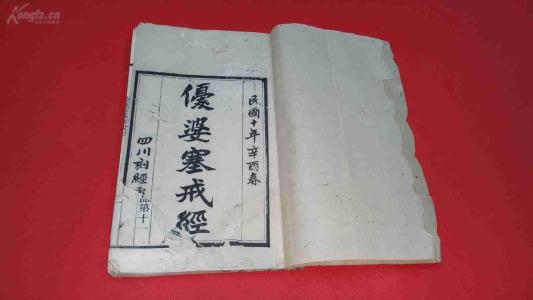 民國十年辛酉春
優婆塞戒經
四川刻經
品第十一
Kongfz.cn